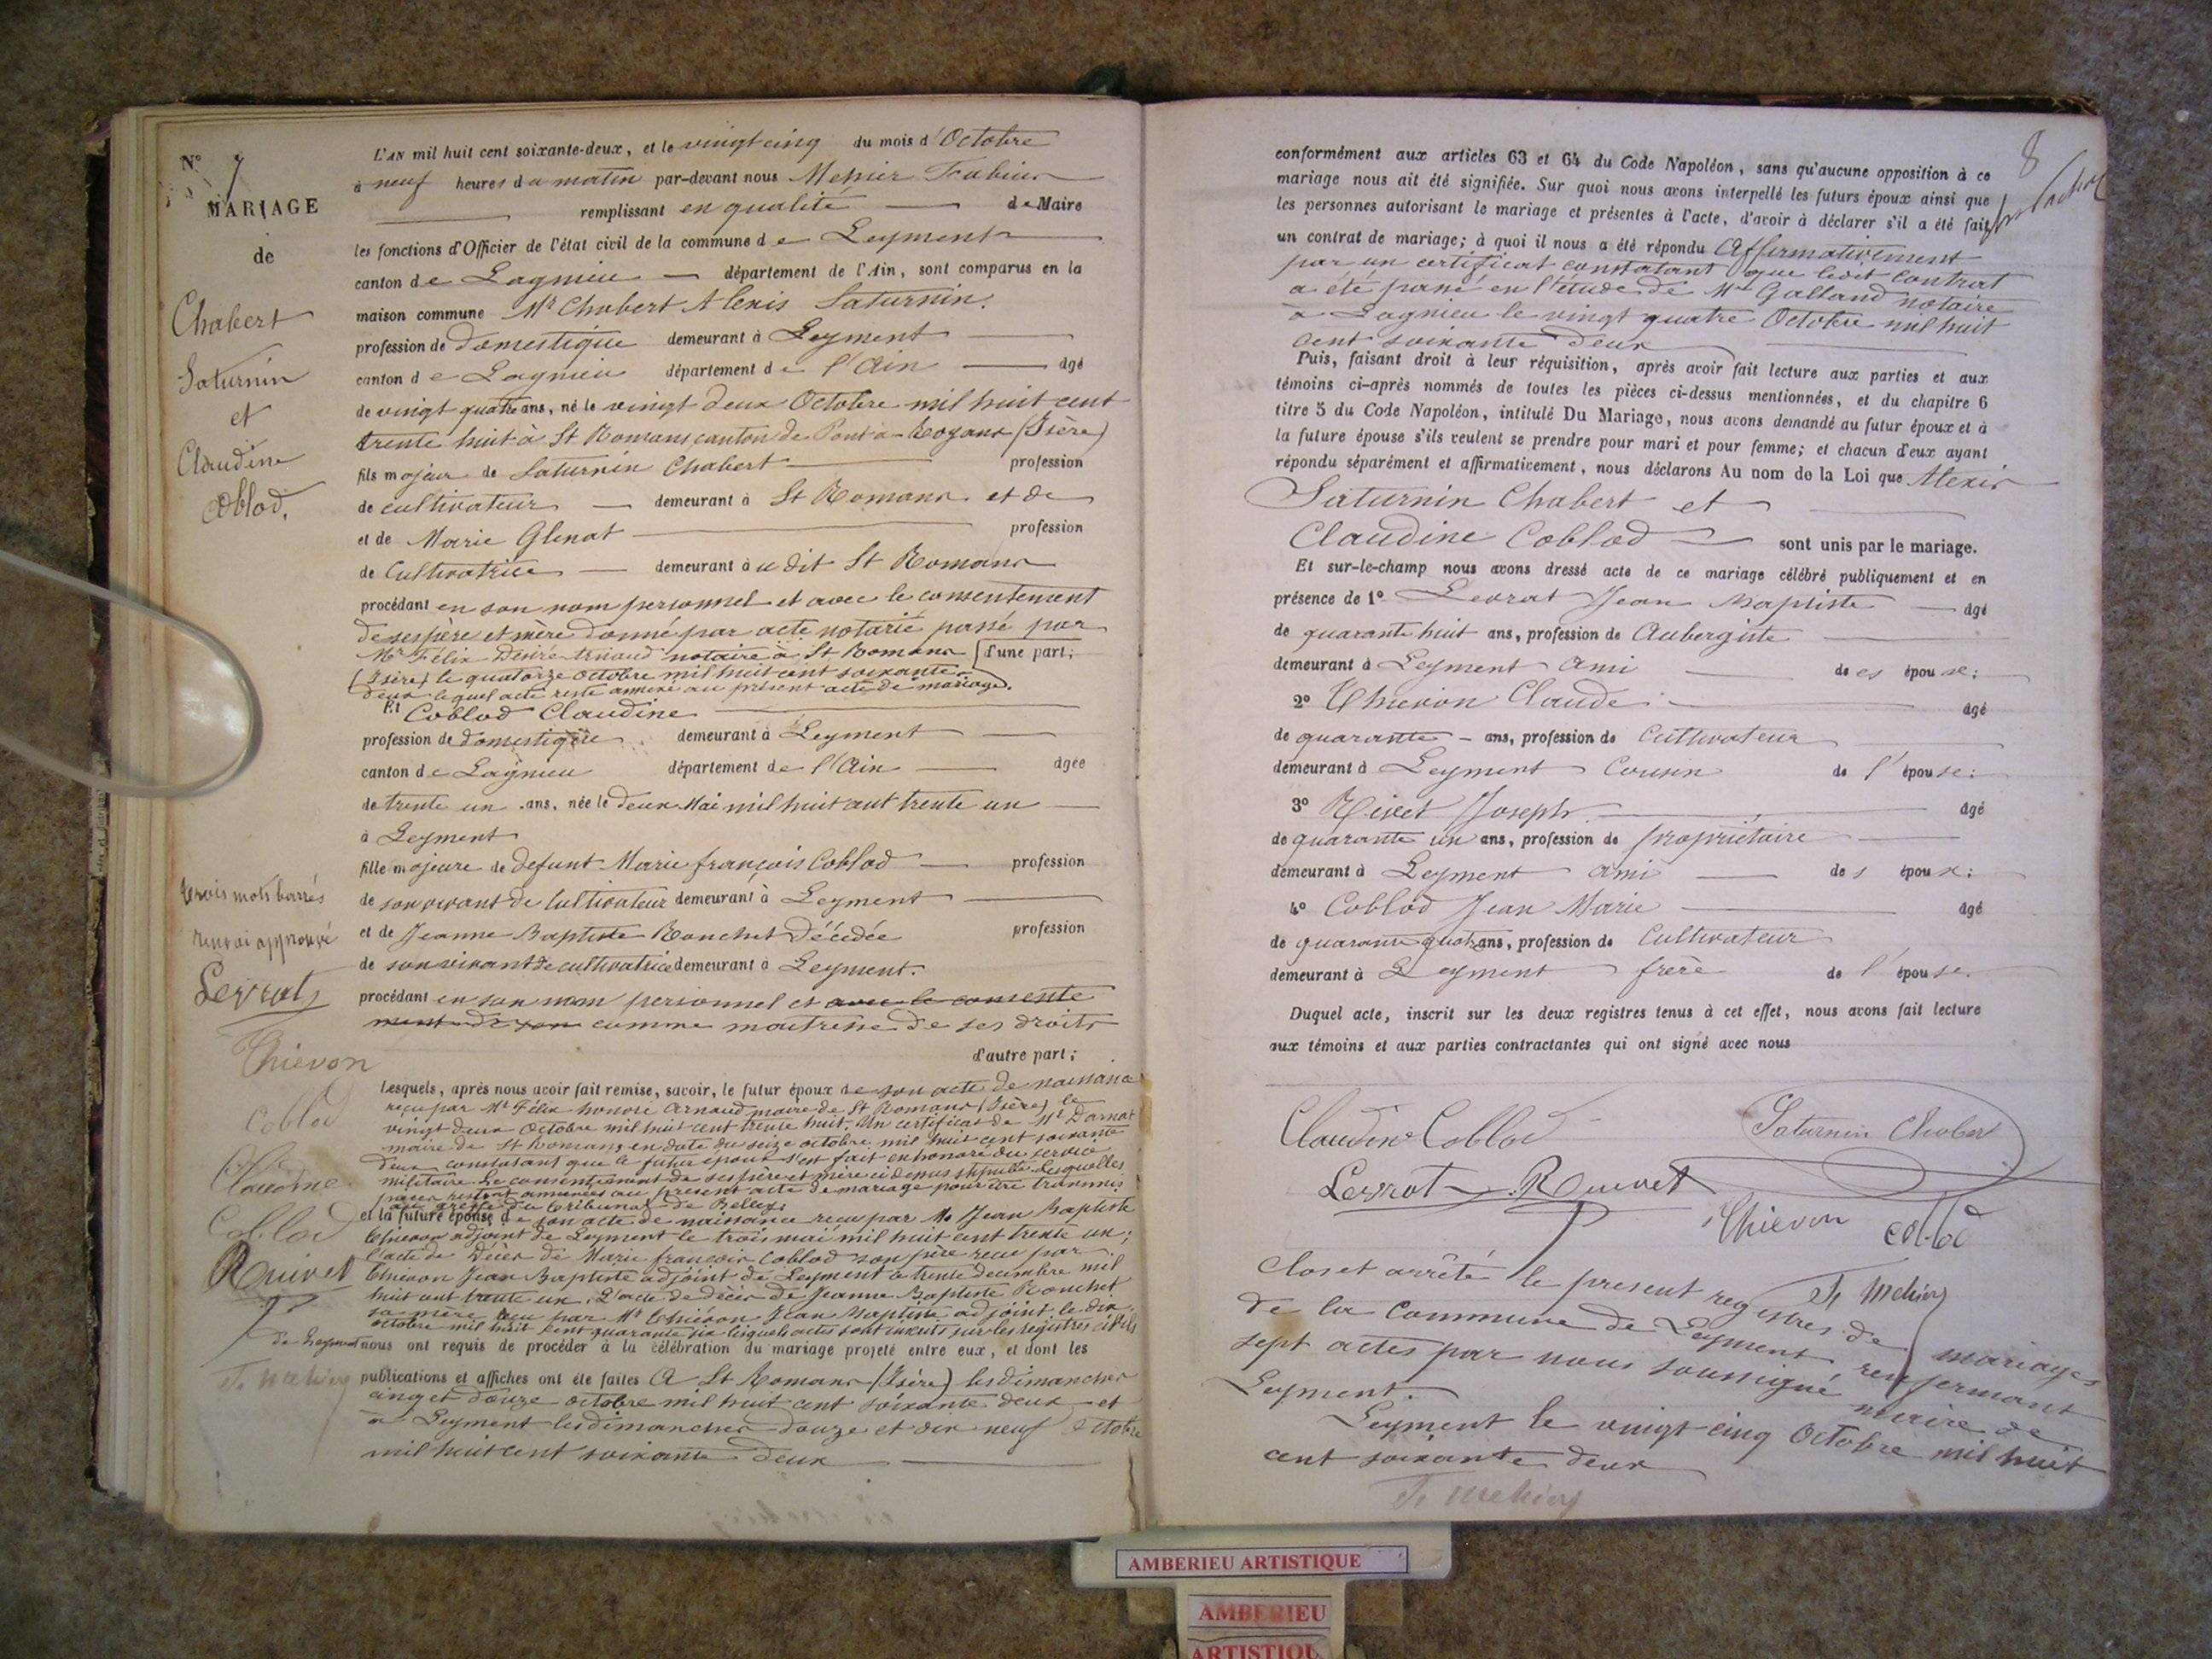 N° 7
MARIAGE
de
Chabert
Saturnin
et
Claudine
Coblod.
L'AN mil huit cent soixante-deux, et le vingt cinq du mois d'Octobre
à neuf heures du matin par-devant nous Mehier Fabien
remplissant en qualité de Maire
les fonctions d'Officier de l'état civil de la commune de Leyment
canton de Lagnieu département de l'Ain, sont comparus en la
maison commune Mr Chabert Alexis Saturnin.
profession de domestique demeurant à Leyment
canton de Lagnieu département de l'Ain âgé
de vingt quatre ans, né le vingt deux Octobre mil huit cent
trente huit à St Romans canton de Pont a Royans (Isère)
fils majeur de Saturnin Chabert profession
de cultivateur demeurant à St Romans et de
et de Marie Glenat profession
de Cultivatrice demeurant à u dit St Romans
procédant en son nom personnel et avec le consentement
de ses père et mère donné par acte notarié passé par
Mr Félix Désiré Arnaud notaire à St Romans d'une part;
(Isère) le quatorze octobre mil huit cent soixante
deux lequel acte reste annexé au présent acte de mariage.
Et Coblod Claudine
profession de domestique demeurant à Leyment
canton de Lagnieu département de l'Ain âgée
de trente un ans, née le deux Mai mil huit cent trente un
à Leyment
fille majeure de defunt Marie françois Coblod profession
de son vivant de Cultivateur demeurant à Leyment
et de Jeanne Baptiste Ronchet Décédée profession
de son vivant de cultivatrice demeurant à Leyment.
procédant en son nom personnel et avec le consente
ment de son comme maitresse de ses droits
d'autre part;
trois mots barrés
renvoi approuvé
Levrat
Thiévon
Coblod
Claudine
Coblod
Ruivet
Lesquels, après nous avoir fait remise, savoir, le futur époux de son acte de naissance
reçu par Mr Félix honoré Arnaud maire de St Romans (Isère) le
vingt deux Octobre mil huit cent trente huit. Un certificat de Mr
maire de St Romans en date du seize octobre mil huit cent soixante
deux constatant que le futur époux s'est fait exhonoré du service
militaire. Le consentement de ses père et mère ci dessus stipulé. Lesquelles
pièces restent annexées au présent acte de mariage pour être transmis
au greffe du tribunal de Belley.
et la future épouse de son acte de naissance reçu par Mr Jean Baptiste
Thiévon adjoint de Leyment le trois mai mil huit cent trente un;
l'acte de Décès de Marie françois Coblod son père reçu par
Thiévon Jean Baptiste adjoint de Leyment le trente decembre mil
huit cent trente un. L'acte de décès de Jeanne Baptiste Ronchet
sa mère reçu par Mr Thiévon Jean Baptiste adjoint le dix
octobre mil huit cent quarante six lesquels actes sont inscrits sur les registres civils
de Leyment nous ont requis de procéder à la célébration du mariage projeté entre eux, et dont les
F. Mehier publications et affiches ont été faites A St Romans (Isère) les dimanches
cinq et douze octobre mil huit cent soixante deux et
à Leyment les dimanches douze et dix neuf Octobre
mil huit cent soixante deux
8
conformément aux articles 63 et 64 du Code Napoléon, sans qu'aucune opposition à ce
mariage nous ait été signifiée. Sur quoi nous avons interpellé les futurs époux ainsi que
les personnes autorisant le mariage et présentes à l'acte, d'avoir à déclarer s'il a été fait
un contrat de mariage; à quoi il nous a été répondu Affirmativement
par un certificat constatant que ledit Contrat
a été passé en l'étude de Me Galland notaire
à Lagnieu le vingt quatre Octobre mil huit
cent soixante deux
Puis, faisant droit à leur réquisition, après avoir fait lecture aux parties et aux
témoins ci-après nommés de toutes les pièces ci-dessus mentionnées, et du chapitre 6
titre 5 du Code Napoléon, intitulé Du Mariage, nous avons demandé au futur époux et à
la future épouse s'ils veulent se prendre pour mari et pour femme; et chacun d'eux ayant
répondu séparément et affirmativement, nous déclarons Au nom de la Loi que Alexis
Saturnin Chabert et
Claudine Coblod sont unis par le mariage.
Et sur-le-champ nous avons dressé acte de ce mariage célébré publiquement et en
présence de 1° Levrat Jean Baptiste âgé
de quarante huit ans, profession de Aubergiste
demeurant à Leyment ami des époux;
2° Thiévon Claude âgé
de quarante ans, profession de Cultivateur
demeurant à Leyment Cousin de l'épouse;
3° Rivet Joseph âgé
de quarante un ans, profession de propriétaire
demeurant à Leyment ami des époux;
4° Coblod Jean Marie âgé
de quarante quatre ans, profession de Cultivateur
demeurant à Leyment frère de l'épouse.
Duquel acte, inscrit sur les deux registres tenus à cet effet, nous avons fait lecture
aux témoins et aux parties contractantes qui ont signé avec nous
Claudine Coblod Saturnin Chabert
Levrat Ruivet
Thiévon Coblod
F. Mehier
Clos et arrêté le present registres de mariages
de la Commune de Leyment, renfermant
sept actes par nous soussigné maire de
Leyment.
Leyment le vingt cinq Octobre mil huit
cent soixante deux
F. Mehier
AMBERIEU ARTISTIQUE
AMBERIEU
ARTISTIQU